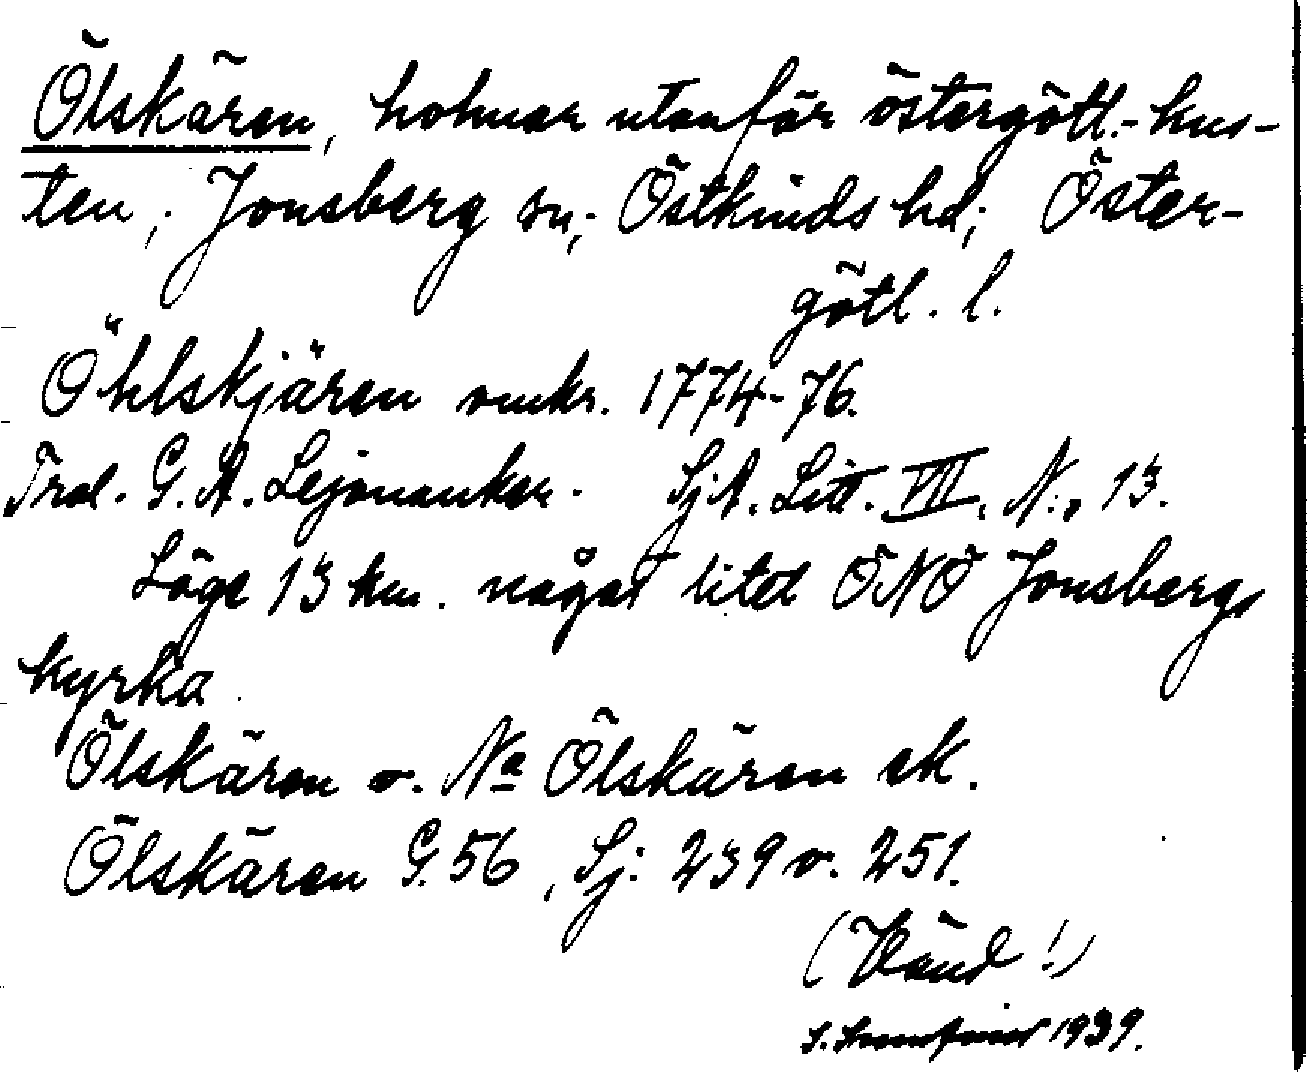 Ölskären, holmar utanför östergötl.-kus-
ten; Jonsberg sn; Östkinds hd; Öster-
götl. l.
Öhlskjären omkr. 1774-76.
Trol. G. A. Lejonanker. Sj A. Litt. VIII. N:o 13.
Läge 13 km. något litet ÖNÖ Jonsbergs
kyrka
Ölskären o. Na Ölskären ek.
Ölskären G. 56, Sj: 239 o. 251.
(Vänd!)
1939.